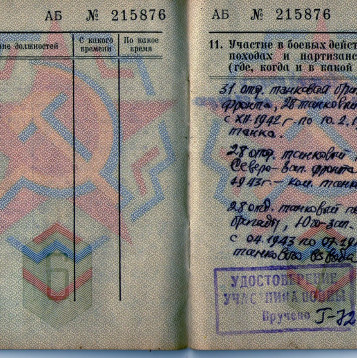 АБ № 215876
ие должностей
С какого времени
По какое время
АБ № 215876
11. Участие в боевых дейст
походах и партизанс
(где, когда и в какой
31 отд. танковой бриг
фронта, 28 танковой
с XII-1942 г. по 10.2.1
танка.
28 отд. танковой
Северо-Зап. фронта
1943г - ком. танка
28 отд. танковый п
бригады, Юго-зап.
с 04.1943 по 07.19
танкового взвода
УДОСТОВЕРЕНИЕ
УЧАСТНИКА ВОЙНЫ
Вручено Г-72